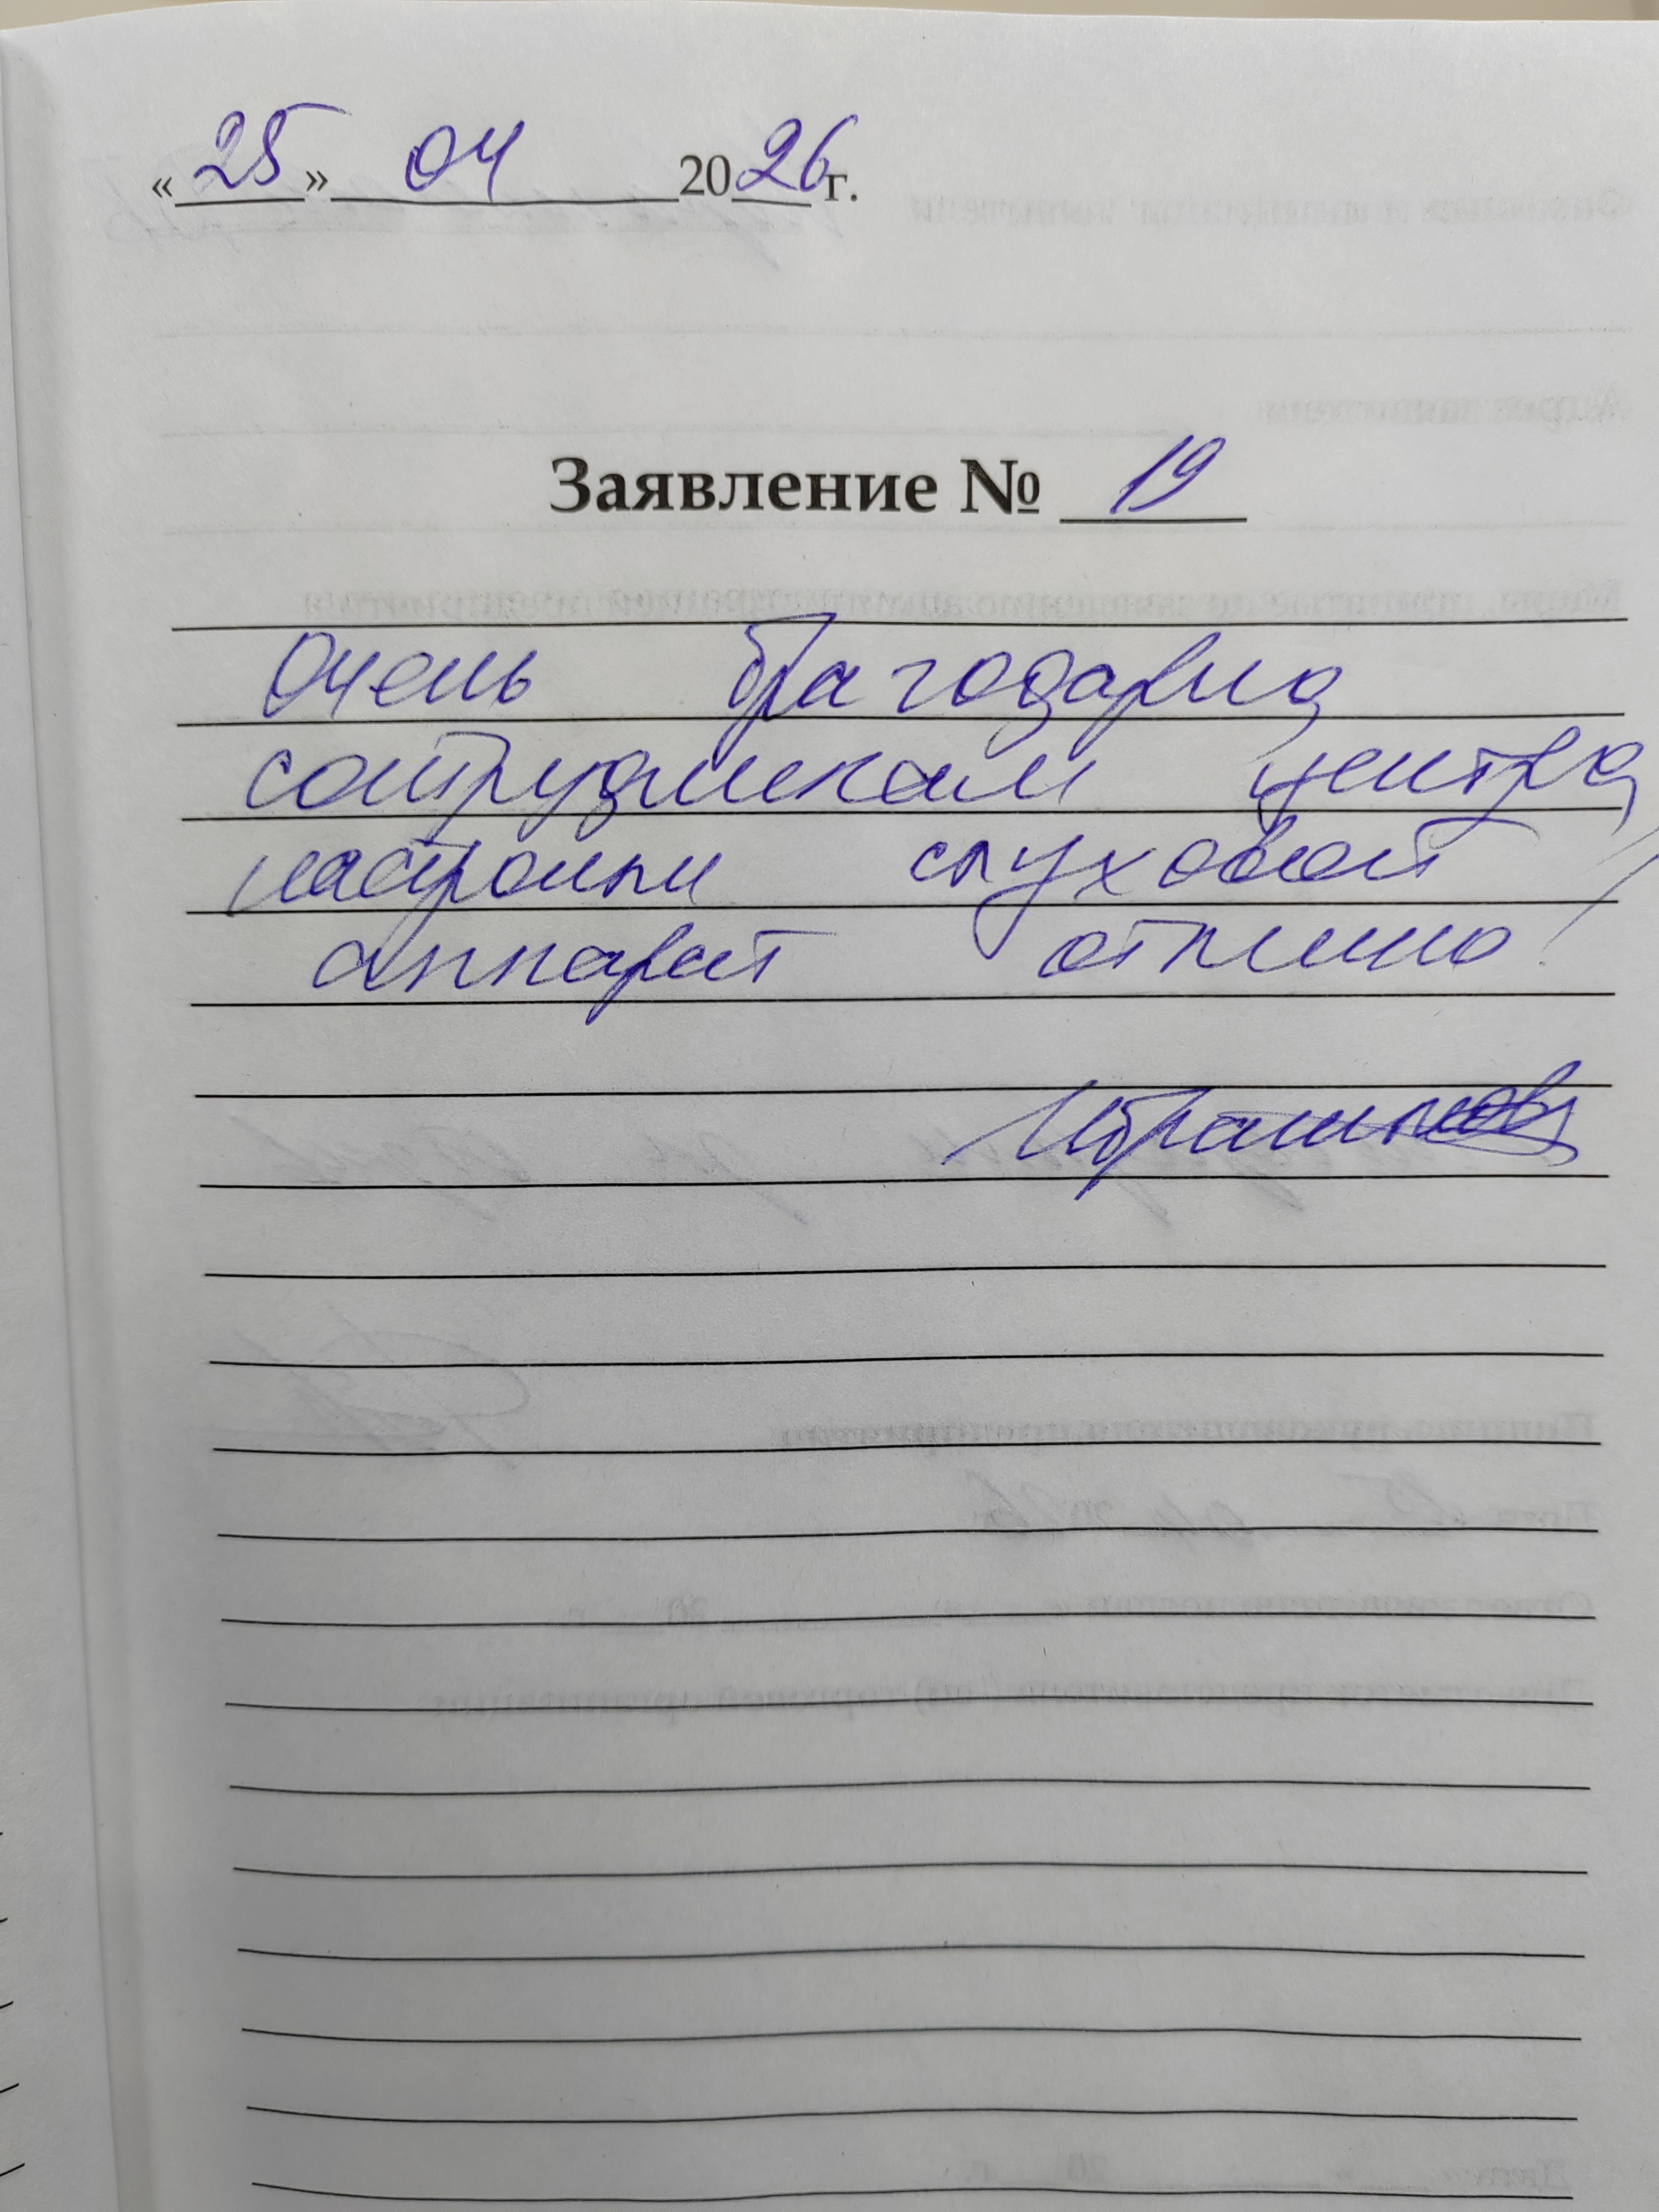 «25» 04 2026г.
Заявление № 19
Очень благодарна
сотрудникам центра
настроили слуховой
аппарат отлично!